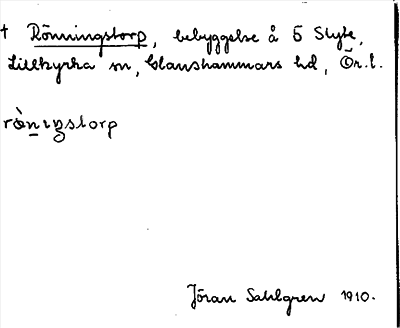 † Rönningstorp, bebyggelse å Ö Slyte,
Lillkyrka sn, Glanshammars hd, Ör. l.
rö̀nıŋstorp
Jöran Sahlgren 1910.